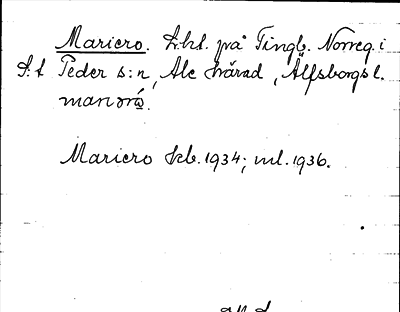 Mariero. Lht. på Tingb. Norreg. i
S:t Peder s:n, Ale härad, Älfsborgs l.
marıorώ.
Mariero kb. 1934; ml. 1936.